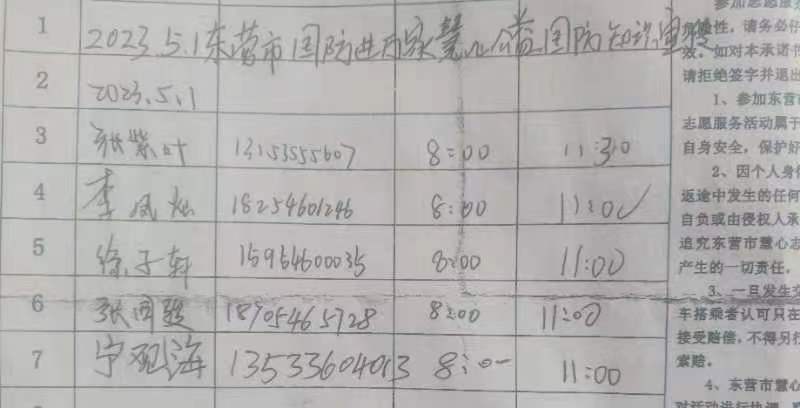 1 2023.5.1东营市国防进万家慧心公益国防知识宣
2 2023.5.1
3 张紫叶 13153555607 8:00 11:30
4 李凤 18254601246 8:00 11:00
5 徐子轩 15964600035 8:00 11:00
6 张同 18905465728 8:00 11:00
7 宁观海 13533604013 8:0 11:00
参加志愿服
险性,请务必仔
效,如对本承诺书
请拒绝签字并退出
1、参加东营市
志愿服务活动属于
自身安全,保护好
2、因个人身体
返途中发生的任何
自负或由侵权人承
追究东营市慧心志
产生的一切责任,
3、一旦发生交
车搭乘者认可只在
接受赔偿,不得另行
索赔。
4、东营市慧心